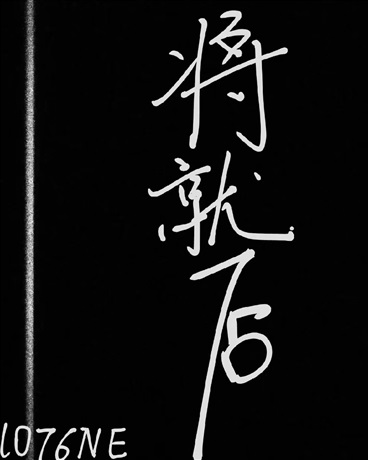 将就
1076NE